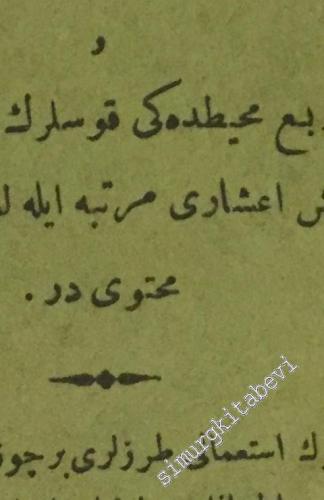 و
ربع محيطده كى قوسلرك
اعشارى مرتبه ايله
محتوى در .
استعمالى طرزلرى بر چوق
simurgkitabevi